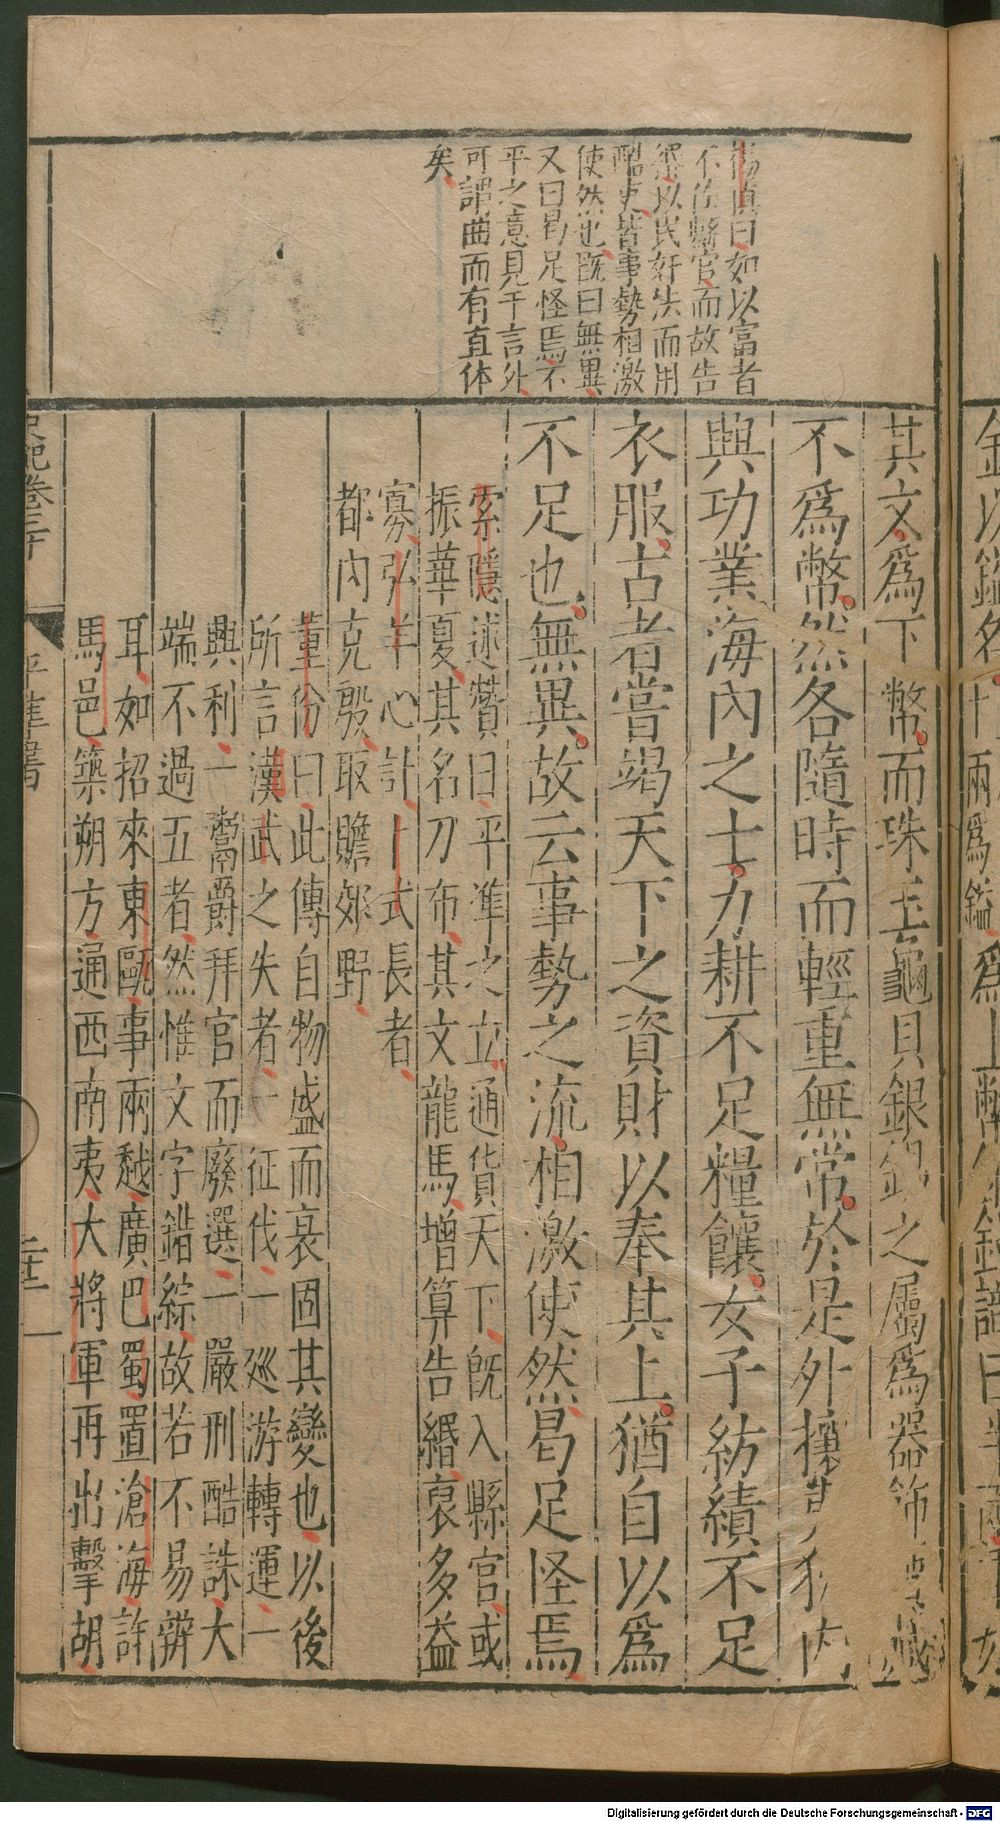 金以鎰名
兩爲鎰爲上幣
楊慎曰如以富者
不佐縣官而故告
緡以民奸法而用
酷吏皆事勢相激
使然也旣曰無異
又曰曷足怪焉不
平之意見于言外
可謂曲而有直体
矣
其文爲下幣而珠玉龜貝銀錫之屬爲器飾寶藏
不爲幣然各隨時而輕重無常於是外攘夷狄内
興功業海內之士力耕不足糧饟女子紡績不足
衣服古者嘗竭天下之資財以奉其上猶自以爲
不足也無異故云事勢之流相激使然曷足怪焉
索隱述贊曰平準之立通貨天下旣入縣官或
振華夏其名刀布其文龍馬增算告緡裒多益
寡弘羊心計卜式長者
都内充殷取贍郊野
董份曰此傳自物盛而衰固其變也以後
所言漢武之失者一征伐一廵游轉運一
興利一鬻爵拜官而廢選一嚴刑酷誅大
端不過五者然惟文字錯綜故若不易辨
耳如招來東甌事兩越廣巴蜀置滄海許
馬邑築朔方通西南夷大將軍再出擊胡
卷三十
平準書
Digitalisierung gefördert durch die Deutsche Forschungsgemeinschaft - DFG